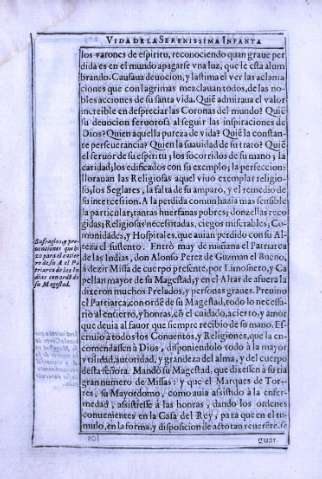 VIDA DE LA SERENISSIMA INFANTA
los varones de espiritu, reconociendo quan graue per
dida es en el mundo apagarse vna luz, que le està alum
brando. Causaua deuocion, y lastima el ver las aclama
ciones que con lagrimas mezclauan todos, de las no-
bles acciones de su santa vida. Quiẽ admiraua el valor
increible en despreciar las Coronas del mundo? Quiẽ
su deuocion feruorosa al seguir las inspiraciones de
Dios? Quien aquella pureza de vida? Quiẽ la constan-
te perseuerancia? Quien la suauidad de su trato? Quiẽ
el feruor de su espiritu; los socorridos de su mano; la
caridad; los edificados con su exemplo; la perfeccion:
llorauan las Religiosas aquel viuo exemplar religio-
so, los Seglares, la falta de su amparo, y el remedio de
su intercession. A la perdida comun hazia mas sensible
la particular, tantas huerfanas pobres; donzellas reco
gidas; Religiosas necessitadas, ciegos miserables, Co-
munidades, y Hospitales, que auian perdido con su Al-
teza el sustento. Entrò muy de mañana el Patriarca
de las Indias, don Alonso Perez de Guzman el Bueno,
à dezir Missa de cuerpo presente, por Limosnero, y Ca
pellan mayor de su Magestad, y en el Altar de afuera la
dixeron muchos Prelados, y personas graues. Preuino
el Patriarca, con ordẽ de su Magestad, todo lo necessa-
rio al entierro, y honras, cõ el cuidado, acierto, y amor
que deuia al fauor que siempre recibio de su mano. Es-
criuio à todos los Conuentos, y Religiones, que la en-
comendassen à Dios, disponiendolo todo à la mayor
vtilidad, autoridad, y grandeza del alma, y del cuerpo
desta señora. Mandò su Magestad, que dixessen à su tia
gran numero de Missas: y que el Marques de Tor-
res, su Mayordomo, como auia assistido à la enfer-
medad, assistiesse à las honras, dando los ordenes
conuenientes en la Casa del Rey, para que en el tu-
mulo, en la forma, y disposicion de acto tan reuerẽte, se
Sufragios, y pre
uenciones que hi
zo para el entier
ro de su A el Pa
triarca de las In
dias con ordẽ de
su Magestad.